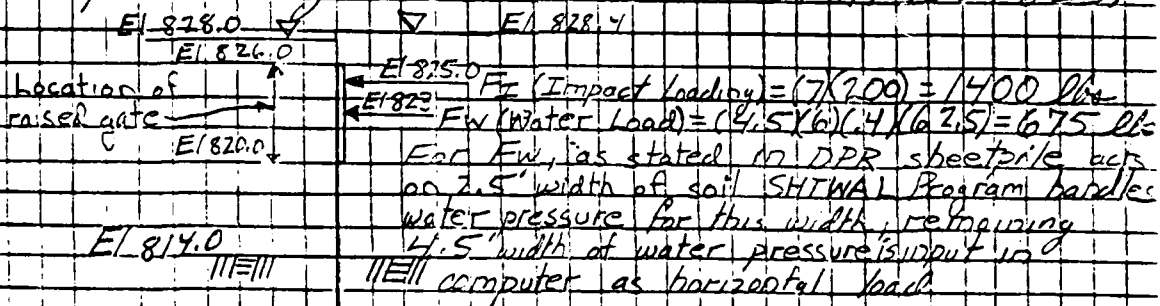 El 828.0
El 828.4
El 826.0
El 825.0
Location of
raised gate
FI (Impact Loading) = (7)(200) = 1400 lbs
El 823
Fw (Water Load) = (4.5)(6)(.4)(62.5) = 675 lbs
El 820.0
For Fw, as stated in DPR sheetpile acts
on 2.5' width of soil SHTWAL Program handles
water pressure for this width, remaining
El 814.0
4.5' width of water pressure is input in
computer as horizontal load